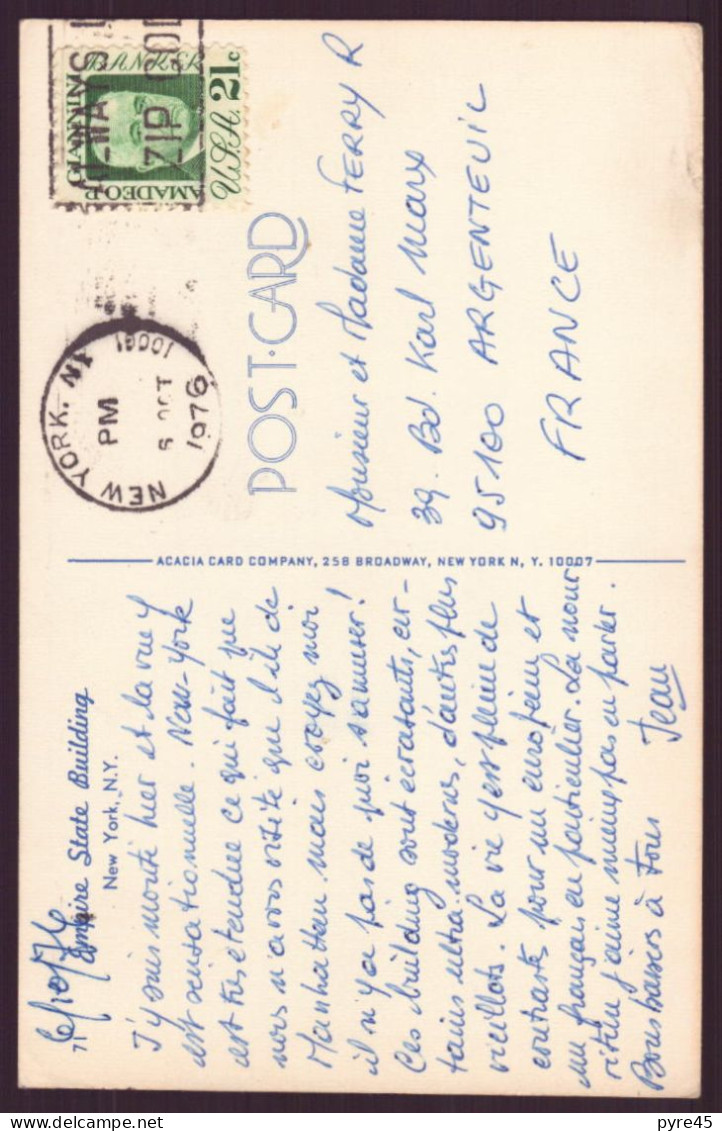 6/10/76
71
Empire State Building
New York, N.Y.
J'y suis monté hier et la vue y
est sensationnelle. New-York
est très étendue ce qui fait que
nous n'avons visité que l'île de
Manhattan mais croyez moi
il n'y a pas de quoi s'amuser!
Ces building sont écrasants, cer-
tains ultra-modernes, d'autres plus
vieillots. La vie y est pleine de
contrastes pour un européen et
un français en particulier. La nour-
riture j'aime mieux pas en parler.
Bons baisers à Tous
Jean
ACACIA CARD COMPANY, 258 BROADWAY, NEW YORK N. Y. 10007
POST·CARD
Monsieur et Madame FERRY R
39. Bd. Karl Marx
95100 ARGENTEUIL
FRANCE
NEW YORK, NY
10001
PM
6 OCT
1976
ALWAYS
ZIP COD
BANKER
AMADEO P. GIANNINI
U.S.A. 21c
pyre45